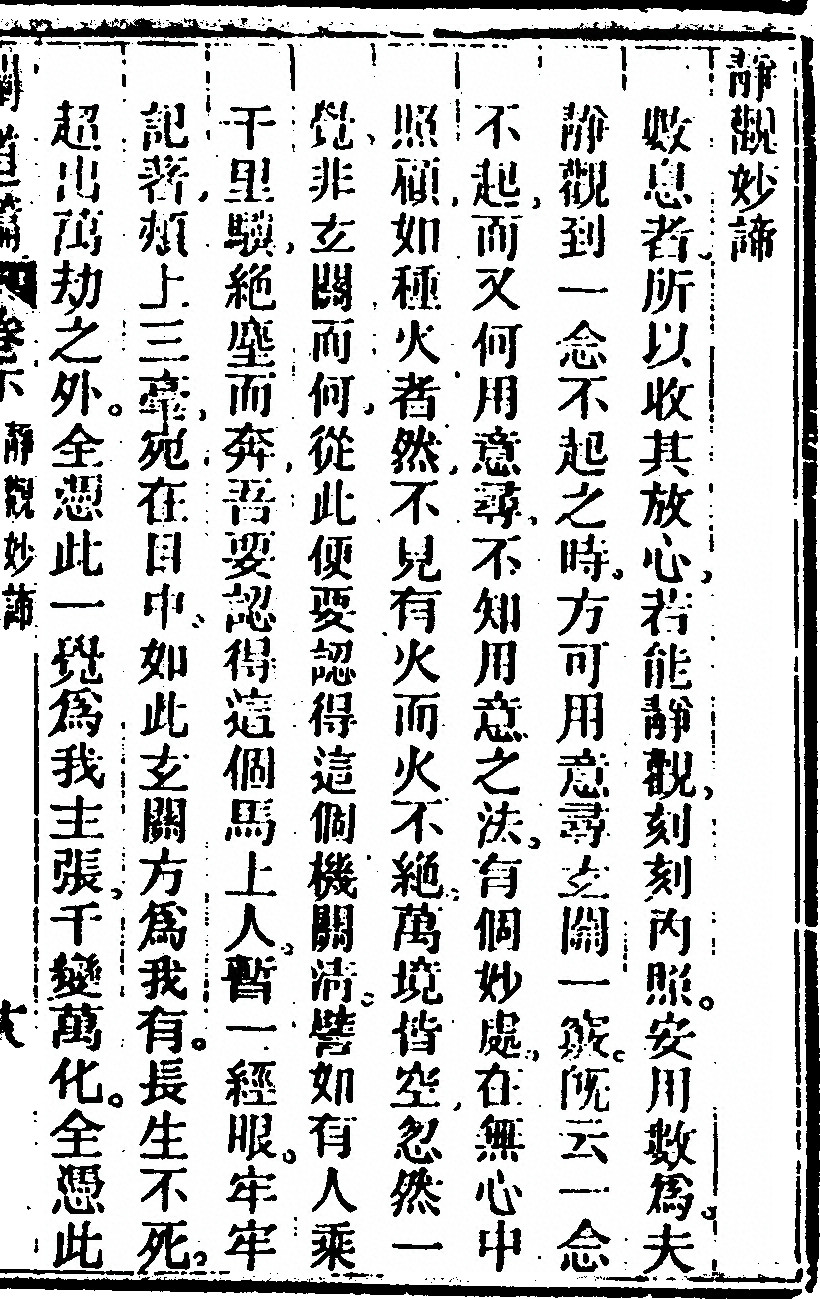 靜觀妙諦
數息者、所以收其放心、若能靜觀、刻刻內照。安用數爲、夫
靜觀到一念不起之時、方可用意尋玄關一竅。旣云一念
不起、而又何用意尋、不知用意之法、有個妙處、在無心中
照顧、如種火者然、不見有火而火不絶。萬境皆空、忽然一
覺、非玄關而何、從此便要認得這個機關淸。譬如有人乘
千里驥、絶塵而奔、吾要認得這個馬上人。暫一經眼。牢牢
記著、頰上三毫、宛在目中、如此玄關方爲我有。長生不死。
超出萬劫之外。全憑此一覺爲我主張、千變萬化。全憑此
卷下 靜觀妙諦